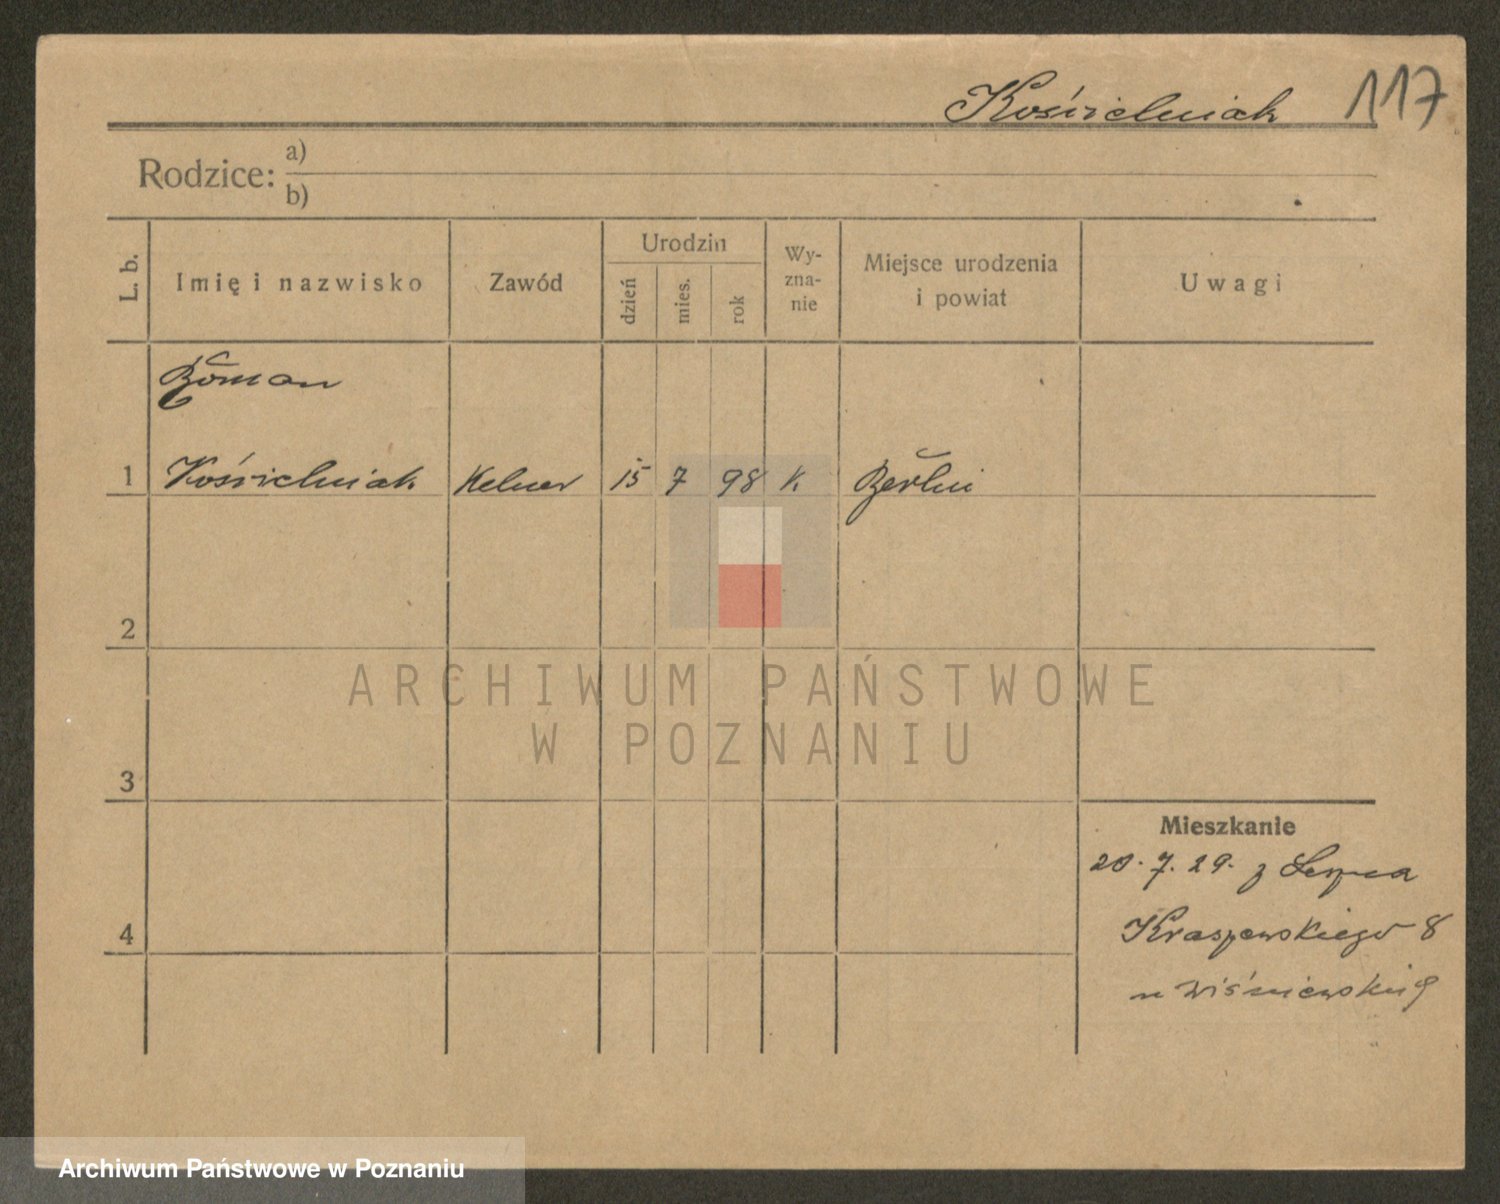 Kościelniak 117
Rodzice: a)
b)
L. b.
Imię i nazwisko
Zawód
Urodzin
dzień
mies.
rok
Wy-
zna-
nie
Miejsce urodzenia
i powiat
Uwagi
Roman
1 Kościelniak Kelner 15 7 98 K. Berlin
2
ARCHIWUM PAŃSTWOWE
W POZNANIU
3
4
Mieszkanie
20. 7. 29. z
Kraszewskiego 8
u Wiśniewskiej
Archiwum Państwowe w Poznaniu